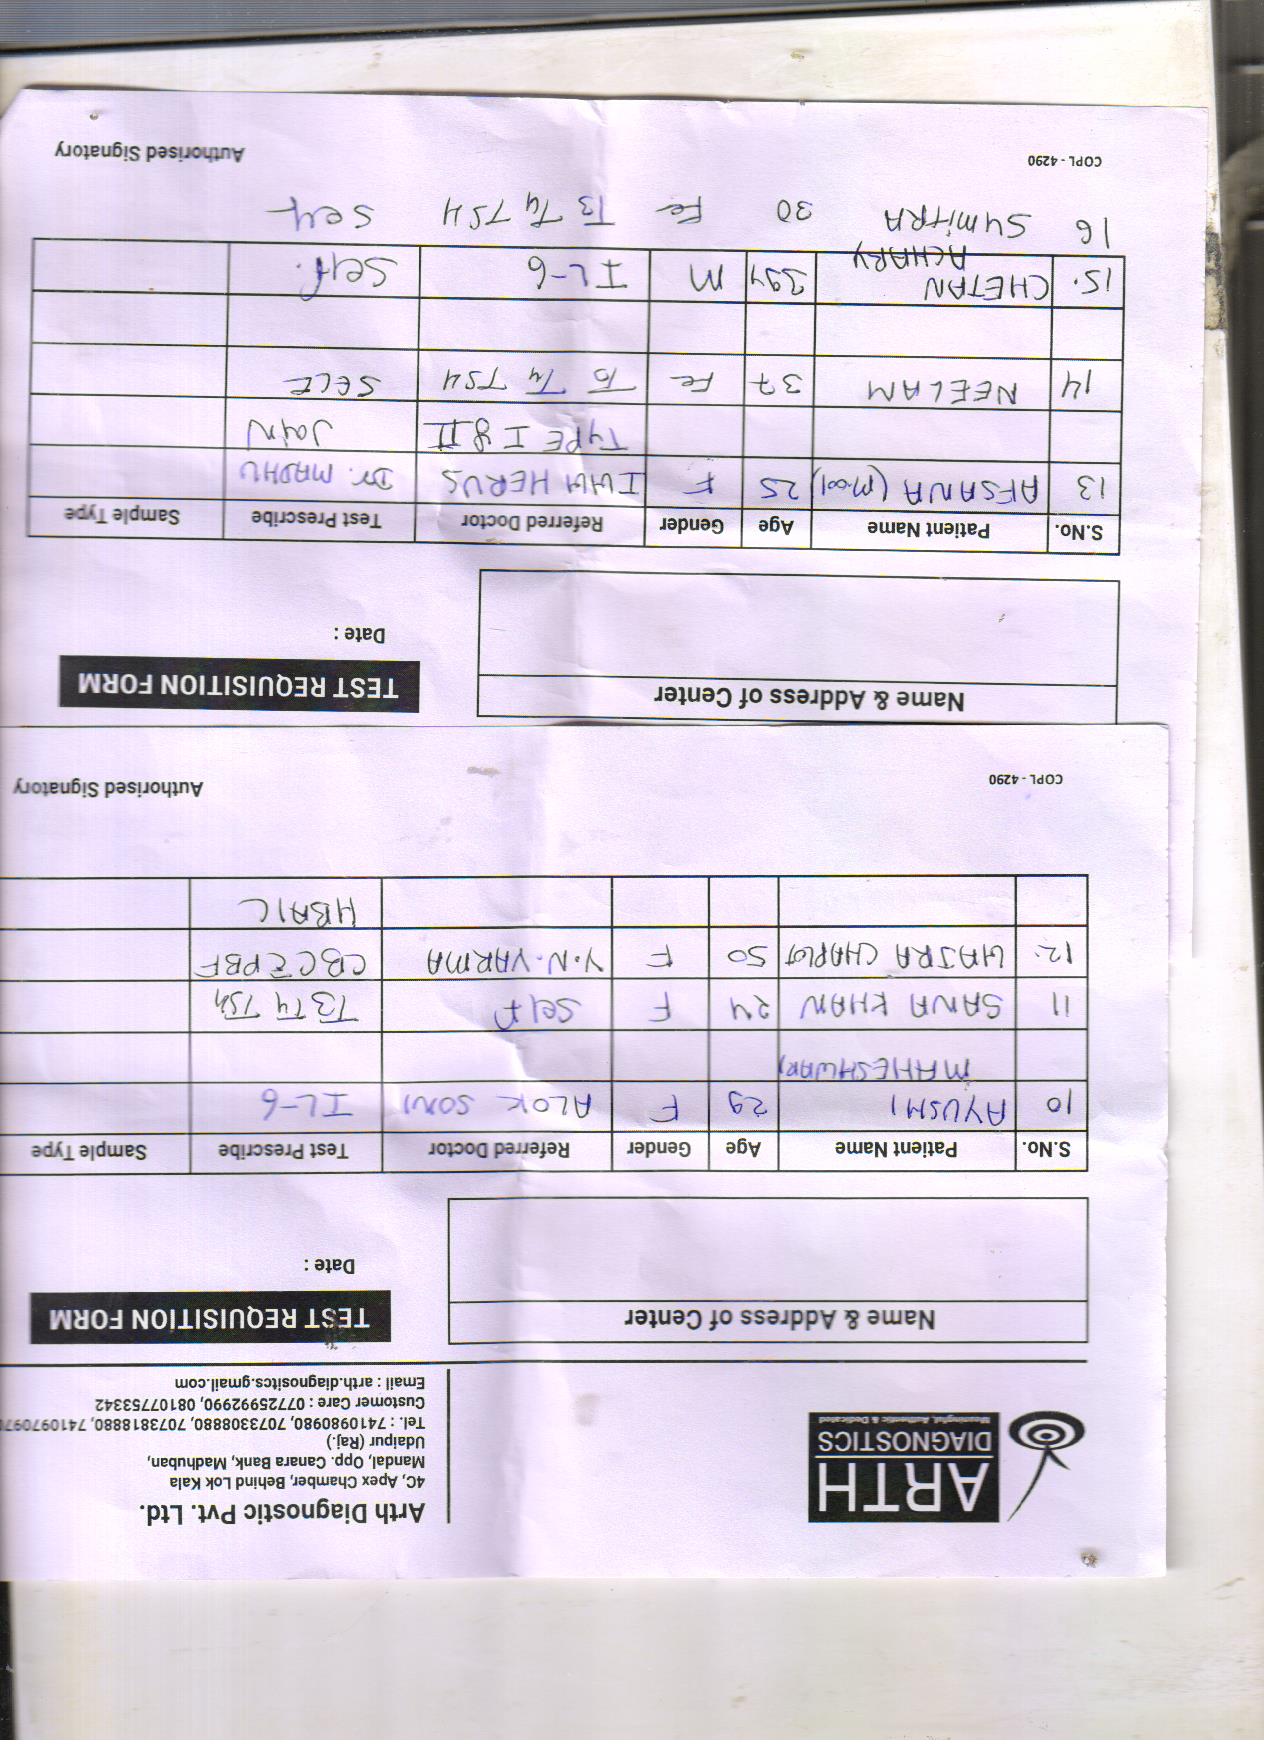 ARTH
DIAGNOSTICS
Meaningful, Authentic & Dedicated
Arth Diagnostic Pvt. Ltd.
4C, Apex Chamber, Behind Lok Kala
Mandal, Opp. Canara Bank, Madhuban,
Udaipur (Raj.)
Tel. : 7410980980, 7073308880, 7073818880, 741097097
Customer Care : 07725992990, 08107753342
Email : arth.diagnositcs.gmail.com
Name & Address of Center
TEST REQUISITION FORM
Date :
S.No. Patient Name Age Gender Referred Doctor Test Prescribe Sample Type
10 AYUSHI 29 F ALOK SONI IL-6
MAHESHWARI
11 SANA KHAN 24 F Self T3 T4 TSH
12. GAJRA CHAPLOT 50 F Y.N. VARMA CBC & PBF
HBA1C
COPL - 4290 Authorised Signatory
Name & Address of Center
TEST REQUISITION FORM
Date :
S.No. Patient Name Age Gender Referred Doctor Test Prescribe Sample Type
13 AFSANA 25 F HERUS Dr. MADHU
TYPE I & II JAIN
14 NEELAM 37 Fe T3 T4 TSH SELF
15. CHETAN 39Y M IL-6 Self.
ACHARY
16 SUMITRA 30 Fe T3 T4 TSH Self
COPL - 4290 Authorised Signatory